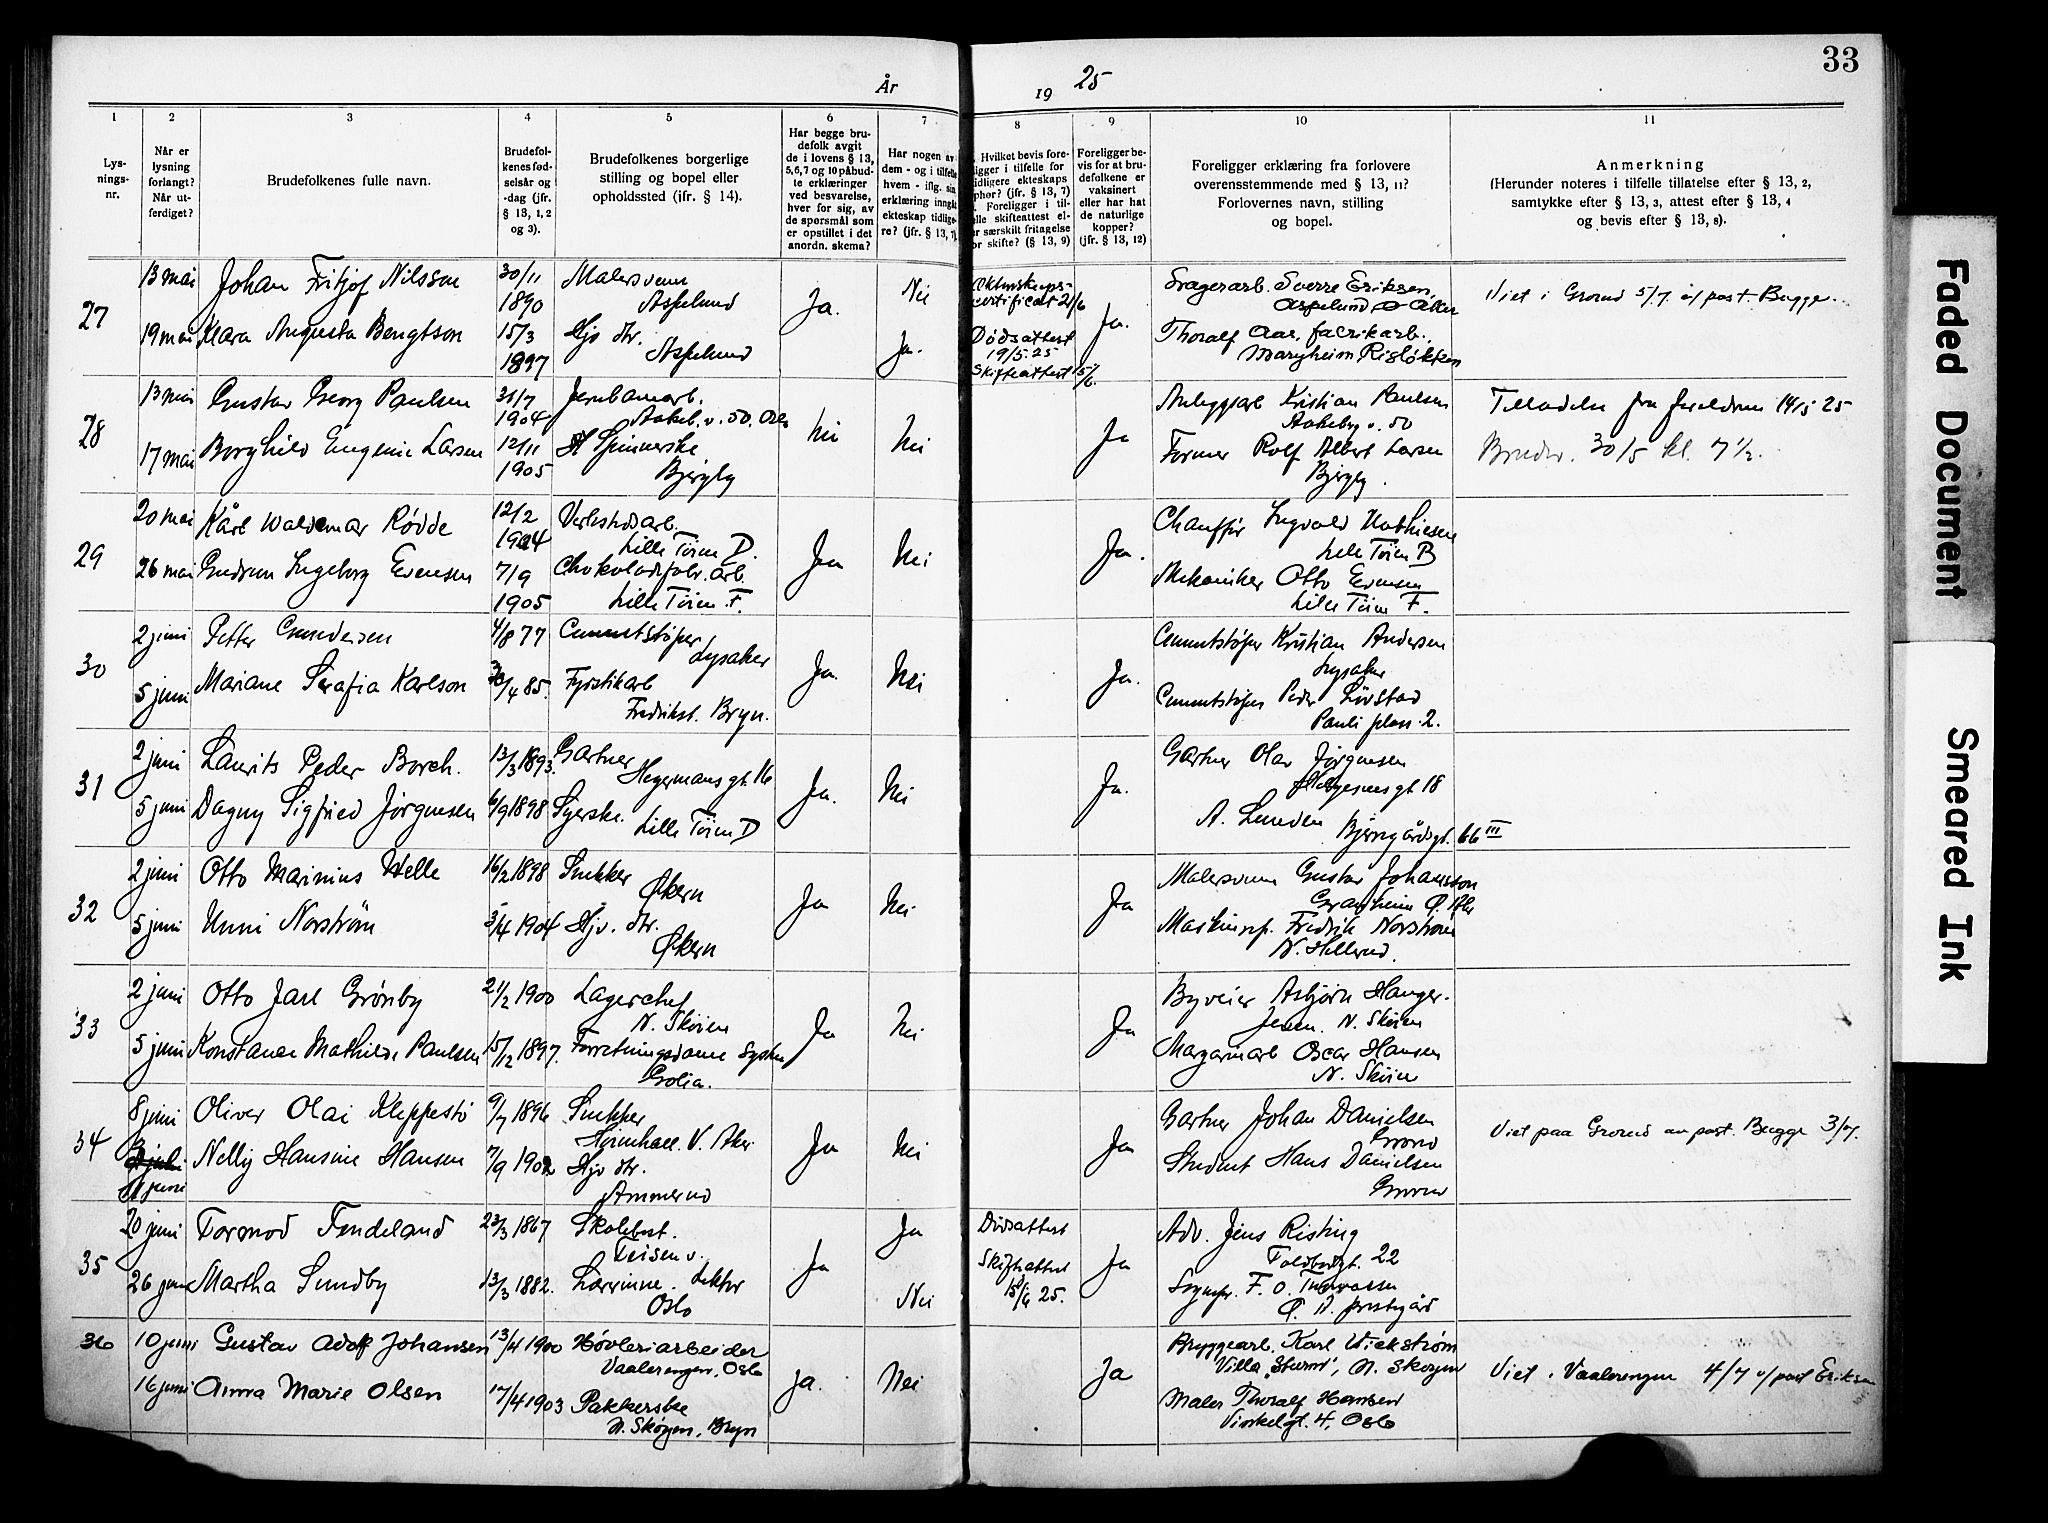 33
År 1925
1 2 3 4 5 6 7 8 9 10 11
Lys-
nings-
nr.
Når er
lysning
forlangt?
Når ut-
ferdiget?
Brudefolkenes fulle navn.
Brudefol-
kenes fød-
selsår og
-dag (jfr.
§ 13, 1, 2
og 3).
Brudefolkenes borgerlige
stilling og bopel eller
opholdssted (jfr. § 14).
Har begge bru-
defolk avgit
de i lovens § 13,
5,6,7 og 10 påbud-
te erklæringer
ved besvarelse,
hver for sig, av
de spørsmål som
er opstillet i det
anordn. skema?
Har nogen av
dem - og i tilfelle
hvem - iflg. sin
erklæring inngåt
ekteskap tidlige-
re? (jfr. § 13, 7).
Hvilket bevis fore-
ligger i tilfelle for
tidligere ekteskaps
ophør? (jfr. § 13, 7)
Foreligger i til-
felle skifteattest el-
er særskilt fritagelse
for skifte? (§ 13, 9)
Foreligger be-
vis for at bru-
defolkene er
vaksinert
eller har hat
de naturlige
kopper?
(jfr. § 13, 12)
Foreligger erklæring fra forlovere
overensstemmende med § 13, 11?
Forlovernes navn, stilling
og bopel.
Anmerkning
(Herunder noteres i tilfelle tillatelse efter § 13, 2,
samtykke efter § 13, 3, attest efter § 13, 4
og bevis efter § 13, 8).
27 13 mai Johan Fritjof Nilsson 30/11 1890 Malersvenn Aspelund Ja. Nei
19 mai Klara Augusta Bengtson 15/3 1897 Hjv dtr. Aspelund Ja.
certificat 21/6
Dødsattest 19/5.25
Skifteattest Ja.
Sverre Eriksen, Aspelund Aker
Thoralf Aas, fabrikarb. Maryheim, Risløkken
Viet i Grorud 5/7 af past. Bugge.
28 13 mai Gustav Georg Paulsen 31/7 1904 Jernbanearb. Nei Nei
17 mai Borghild Eugenie Larsen 12/11 1905 Spinnerske Bjergby Ja
Anleggsarb Kristian Paulsen
Aakeby v. 50
Former Rolf Albert Larsen
Bjergby
Tilladelse fra foreldrene 14/5 25
30/5 kl. 7 1/2.
29 20 mai Kåre Waldemar Rödde 12/2 1904 Verkstedsarb. Lille Töien D. Ja Nei
26 mai Gudrun Ingeborg Evensen 7/9 1905 Chokoladefabr. arb. Lille Töien F. Ja.
Chauffør Ingvald Mathiesen
Lille Töien B
Mekaniker Otto Evensen
Lille Töien F.
30 2 juni Petter Gundersen 4/8 77 Cementstøper Lysaker Ja. Nei
5 juni Mariane Serafia Karlson /4 85. Fyrstikarb Fredrikst. Bryn. Ja.
Cementstøper Kristian Andersen
Lysaker
Cementstøper Peder Lövstad
Pauli plass 2.
31 2 juni Laurits Peder Borch. 13/3 1893. Gartner Hegermans gt. 16 Ja. Nei
5 juni Dagny Sigfried Jörgensen 6/9 1898 Syerske. Lille Töien D Ja.
Gartner Olav Jørgensen
gt 18
A. Lunden Bjerregårdsgt. 66 III
32 2 juni Otto Marinius Helle 16/2 1898 Snekker Økern Ja Nei
5 juni Unni Norström 3/4 1904 Hjv. dtr. Økern Ja
Malersvenn Gustav Johansson
Granheim Ø. Aker
Fredrik Norström
N. Hellerud.
33 2 juni Otto Jarl Grönby 21/2 1900 Lagerchef N. Skøien Ja Nei
5 juni Konstance Mathilde Paulsen 15/12 1897. Forretningsdame Golia. Ja
Asbjørn Hanger-
Jensen. N. Skøien
Margarinarb Oscar Hansen
N. Skøien
34 8 juni Oliver Olai Kleppestö 9/7 1896 Snekker V. Aker Ja Nei
11 juni Nelly Hansine Hansen 7/9 1902 Hjv dtr. Ammerud Ja
Gartner Johan Danielsen
Grorud
Student Hans Danielsen
Grorud
Viet paa Grorud av past. Bugge 3/7.
35 20 juni Tormod Fendeland 23/3 1867 Skolebest. Teisen v. Ja Ja
26 juni Martha Sundby 13/3 1882. Lærerinne. Oslo Nei
Dødsattest
Skifteattest 25. Ja
Adv. Jens Risting
Toldbodgt. 22
Sognepr. F. O.
Ø. A. prestegård
36 10 juni Gustav Adolf Johansen 13/4 1900 Høvleriarbeider Vaalerengen, Oslo ja. Nei
16 juni Anna Marie Olsen 17/4 1903 Pakkerske N. Skøyen, Bryn Ja
Bryggearb. Karl Vickstrøm
Villa "Sturm", N. Skøyen
Maler Thoralf Hansen
Vinkelgt. 4, Oslo
Viet i Vaalerengen 4/7 v/past Eriksen
Faded Document
Smeared Ink